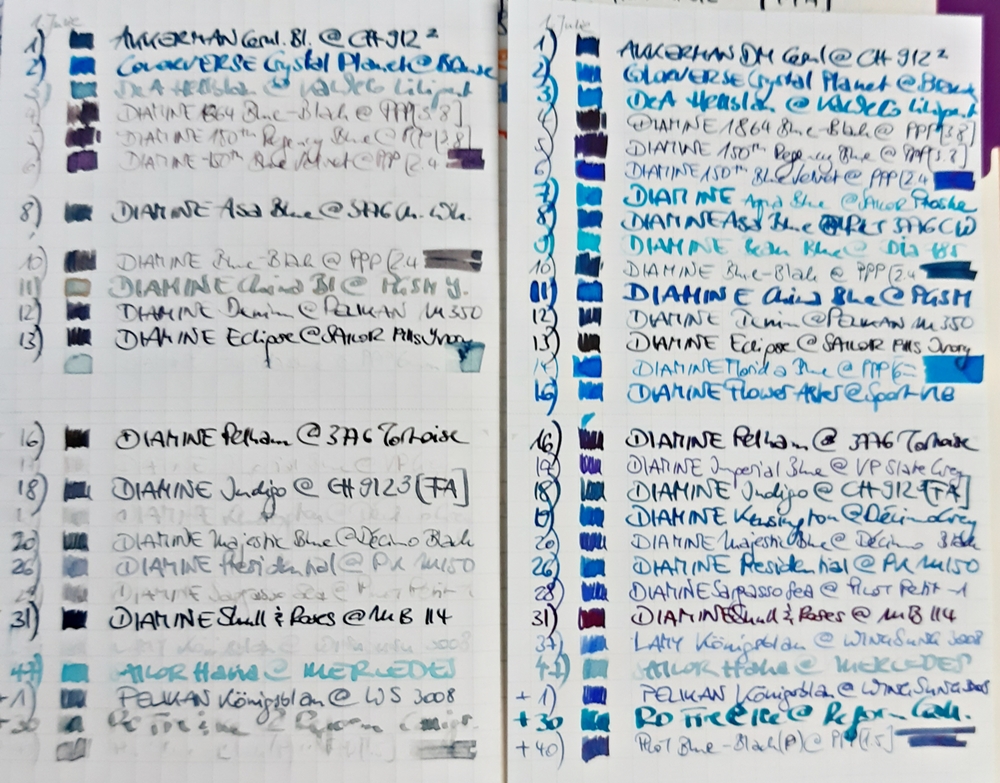 1. Julie
1) AKKERMAN Ceml. Bl. @ CH 912²
2) COLORVERSE Crystal Planet @
3) DeA @ KAWECO Liliput
DIAMINE 1864 Blue-Black @ PPP [3.8]
DIAMINE 150th Regency Blue @ PPP [3.8]
DIAMINE 150th Blue Velvet @ PPP [2.4
8) DIAMINE Asa Blue @ 3776 Ch. Wh.
10) DIAMINE Blue-Black @ PPP [2.4
11) DIAMINE China Bl @ PGSM Y.
12) DIAMINE Denim @ PELIKAN M 350
13) DIAMINE Eclipse @ SAILOR PMS Ivory
16) DIAMINE Pelham @ 3776 Tortoise
18) DIAMINE Indigo @ CH 9123 [FA]
20) DIAMINE Majestic Blue @ Décimo Black
26) DIAMINE Presidential @ PK M150
28)
31) DIAMINE Skull & Roses @ MB 114
47) SAILOR Hana @ MERCEDES
+1) PELIKAN Königsblau @ WS 3008
+30
1. Julie
1) AKKERMAN DM Ceml @ CH 912²
2) COLORVERSE Crystal Planet @
3) DeA @ KAWECO Liliput
DIAMINE 1864 Blue-Black @ PPP [3.8]
DIAMINE 150th Regency Blue @ PPP [3.8]
6) DIAMINE 150th Blue Velvet @ PPP [2.4
7) DIAMINE Aqua Blue @ SAILOR
8) DIAMINE Asa Blue @ 3776 CW
9) DIAMINE Blue @ Dia
10) DIAMINE Blue-Black @ PPP [2.4
11) DIAMINE China Blue @ PGSM
12) DIAMINE Denim @ PELIKAN M 350
13) DIAMINE Eclipse @ SAILOR PMS Ivory
DIAMINE Florida Blue @ PPP
15) DIAMINE Flower Aster @ Sport NB
16) DIAMINE Pelham @ 3776 Tortoise
17) DIAMINE Imperial Blue @ VP Slate Grey
18) DIAMINE Indigo @ CH 9123 [FA]
19) DIAMINE Kensington @ Décimo Grey
20) DIAMINE Majestic Blue @ Décimo Black
26) DIAMINE Presidential @ PK M150
28) DIAMINE Sargasso Sea @ PILOT Petit-1
31) DIAMINE Skull & Roses @ MB 114
37) LAMY Königsblau @ WING SUNG 3008
47) SAILOR Hana @ MERCEDES
+1) PELIKAN Königsblau @ WING SUNG 3008
+30 Fire & Ice @ Reform
+40) Pilot Blue-Black (P) @ PPP [1.5]